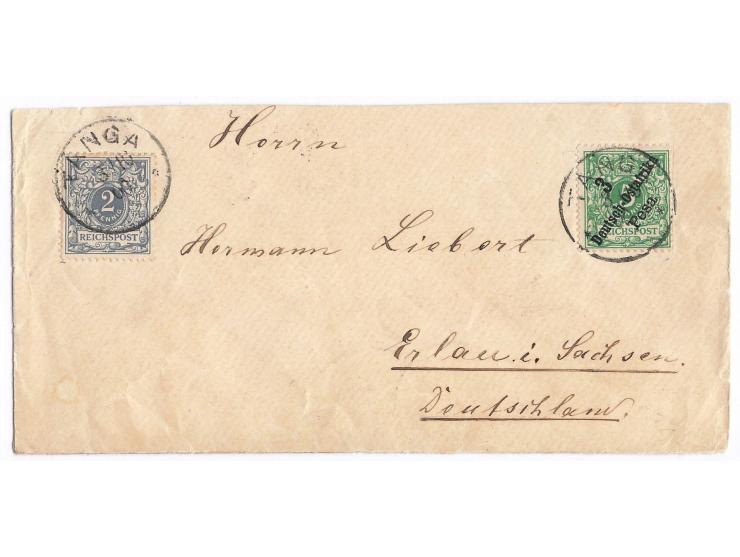 TANGA
2
PFENNIG
REICHSPOST
Herrn
TANGA
3
Deutsch-Ostafrika
Pesa
REICHSPOST
Hermann Liebert
Erlau i. Sachsen.
Deutschland.